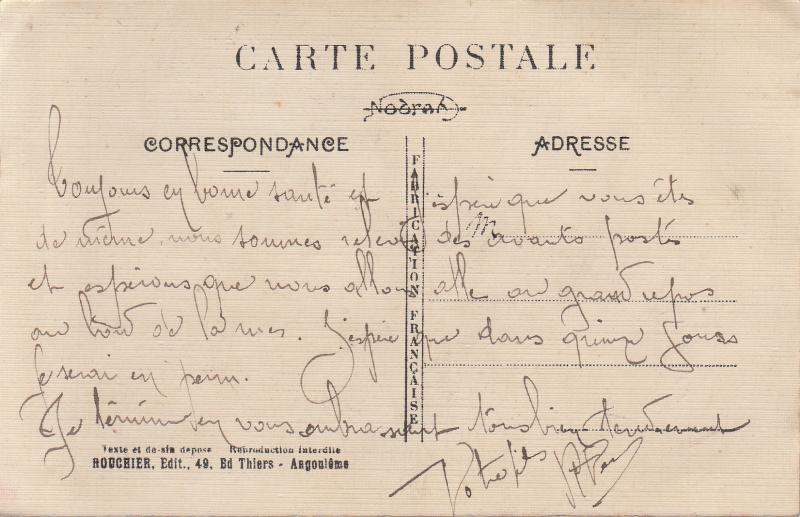 CARTE POSTALE
Nodrah
CORRESPONDANCE
ADRESSE
FABRICATION FRANÇAISE
Toujours en bonne santé et j'espère que vous êtes
de même, nous sommes relevés des avants postes
et espérons que nous allons allé au grand repos
au bord de la mer. J'espère que dans quinze jours
Je serai en perm.
Je termine en vous embrassant tous bien tendrement
Votre fils
Texte et dessin déposé Reproduction interdite
ROUCHIER, Edit., 49, Bd Thiers - Angoulême